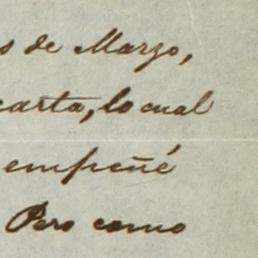 s de Marzo,
carta, lo cual
empeñé
Pero como